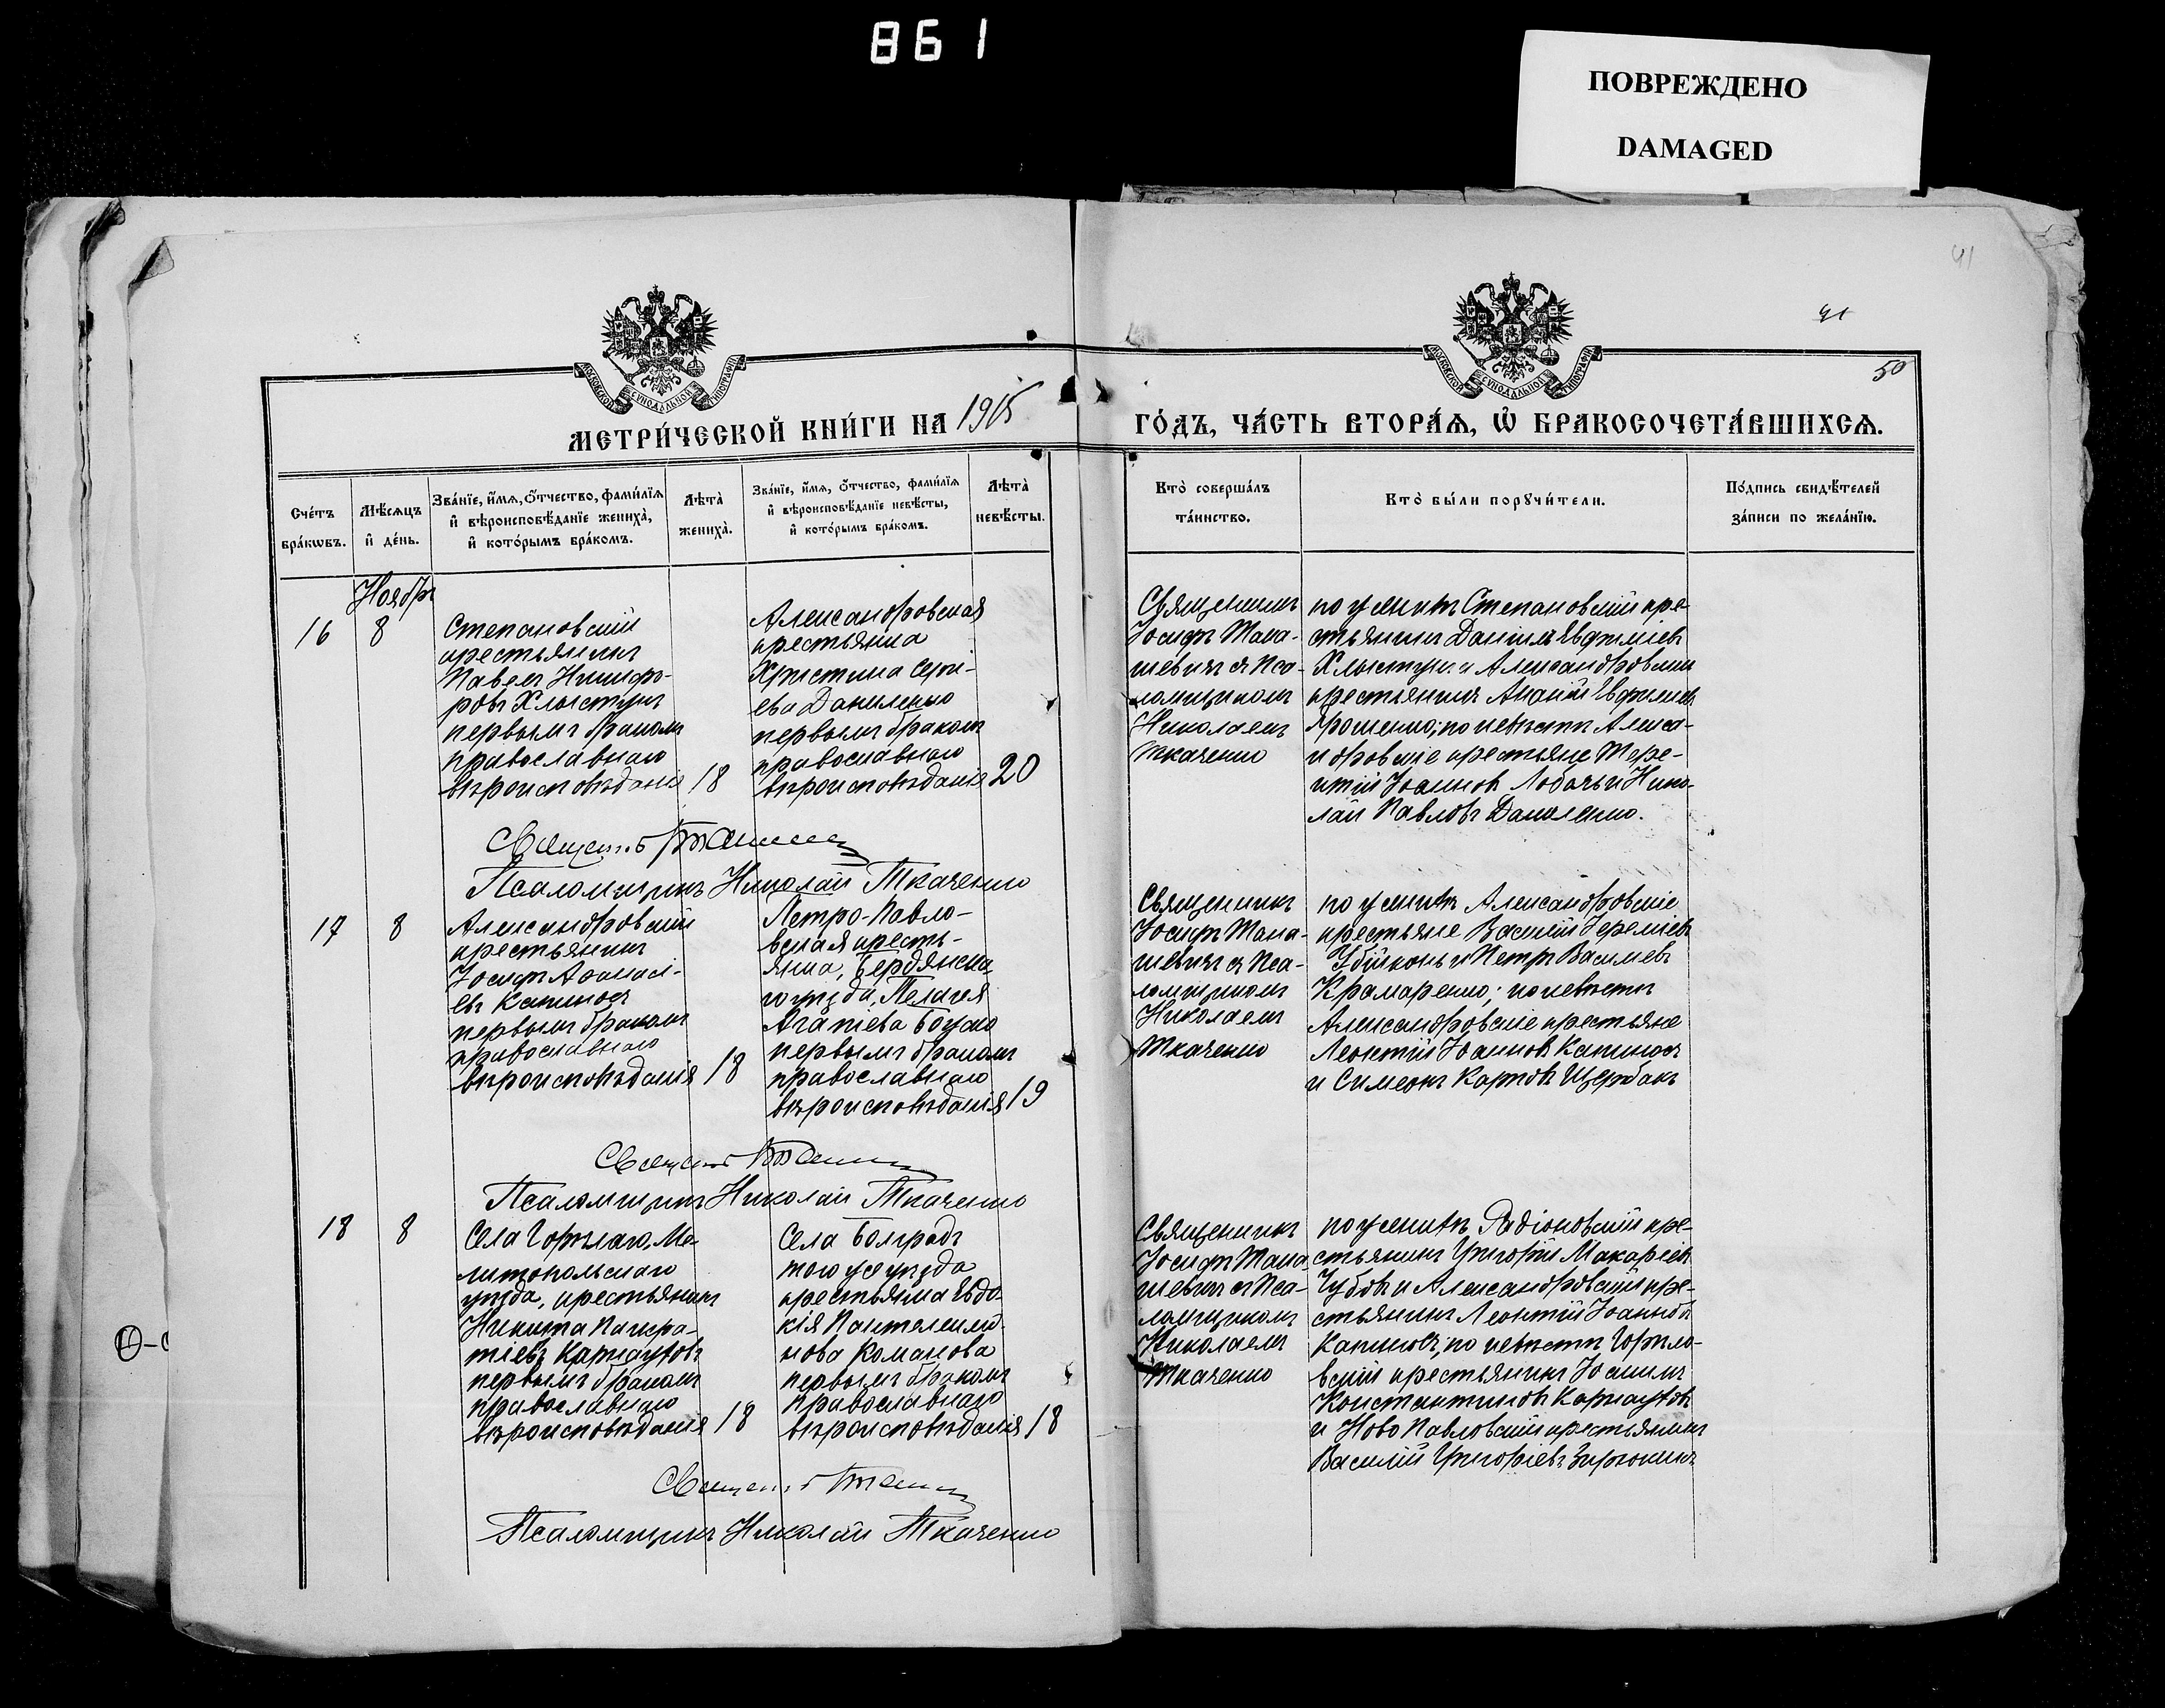 861
ПОВРЕЖДЕНО
DAMAGED
41
41
50
МОСКОВСКОЙ СУНОДАЛЬНОЙ ТИПОГРАФІИ
МОСКОВСКОЙ СУНОДАЛЬНОЙ ТИПОГРАФІИ
МЕТРИ́ЧЕСКОЙ КНИ́ГИ НА 1915
ГО́ДЪ, ЧА́СТЬ ВТОРА́Ѧ, Ѽ БРАКОСОЧЕТА́ВШИХСѦ.
Сче́тъ
бра́кωвъ.
Мѣ́сѧцъ
и҆ де́нь.
Зва́нїе, и҆́мѧ, ѻ҆́тчество, фами́лїѧ
и҆ вѣроисповѣ́данїе жениха̀,
и҆ кото́рымъ бра́комъ.
Лѣта̀
жениха̀.
Зва́нїе, и҆́мѧ, ѻ҆́тчество, фами́лїѧ
и҆ вѣроисповѣ́данїе невѣ́сты,
и҆ кото́рымъ бра́комъ.
Лѣта̀
невѣ́сты.
Кто̀ соверша́лъ
та́инство.
Кто̀ бы́ли порꙋчи́тели.
По́дпись свидѣ́телей
за́писи по жела́нїю.
Ноябр
16
8
Степановскій
крестьянинъ
Павелъ Никифо-
ровъ Хлыстунъ
первымъ бракомъ
православнаго
вѣроисповѣданія
18
Александровская
крестьянка
Христина Серги-
ева Даниленко
первымъ бракомъ
православнаго
вѣроисповѣданія
20
Священникъ
Іосифъ Мана-
шевичъ съ Пса-
ломщикомъ
Николаемъ
Ткаченко
по женихѣ Степановскій кре-
стьянинъ Даніилъ Евфиміевъ
Хлыстунъ и Александровскій
крестьянинъ Ананій Евфиміевъ
Ярошенко; по невѣстѣ Алекса-
ндровскіе крестьяне Тере-
нтій Іоанновъ Лобачъ и Нико-
лай Павловъ Даниленко.
Псаломщикъ Николай Ткаченко
17
8
Александровскій
крестьянинъ
Іосифъ Аѳанасі-
евъ Капиносъ
первымъ бракомъ
православнаго
вѣроисповѣданія
18
Петро-Павло-
вская кресть-
янка, Бердянска-
го уѣзда, Пелагея
Агапіева Боцко
первымъ бракомъ
православнаго
вѣроисповѣданія
19
Священникъ
Іосифъ Мана-
шевичъ съ Пса-
ломщикомъ
Николаемъ
Ткаченко
по женихѣ Александровскіе
крестьяне Василій Іереміевъ
Убійконь и Петръ Васильевъ
Крамаренко; по невѣстѣ
Александровскіе крестьяне
Леонтій Іоанновъ Капиносъ
и Симеонъ Карповъ Щербакъ
Псаломщикъ Николай Ткаченко
18
8
Села Горѣлаго, Ме-
литопольскаго
уѣзда, крестьянинъ
Никита Панкра-
тіевъ Карнауховъ
первымъ бракомъ
православнаго
вѣроисповѣданія
18
Села Болградъ
того же уѣзда
крестьянка Евдо-
кія Пантелеимо-
нова Команова
первымъ бракомъ
православнаго
вѣроисповѣданія
18
Священникъ
Іосифъ Мана-
шевичъ съ Пса-
ломщикомъ
Николаемъ
Ткаченко
по женихѣ Радіоновскій кре-
стьянинъ Григорій Макаріевъ
Чубовъ и Александровскій кре-
стьянинъ Леонтій Іоанновъ
Капиносъ; по невѣстѣ Горѣло-
вскій крестьянинъ Іоакимъ
Константиновъ Карнауховъ
и Ново Павловскій крестьянинъ
Василій Григоріевъ
Псаломщикъ Николай Ткаченко